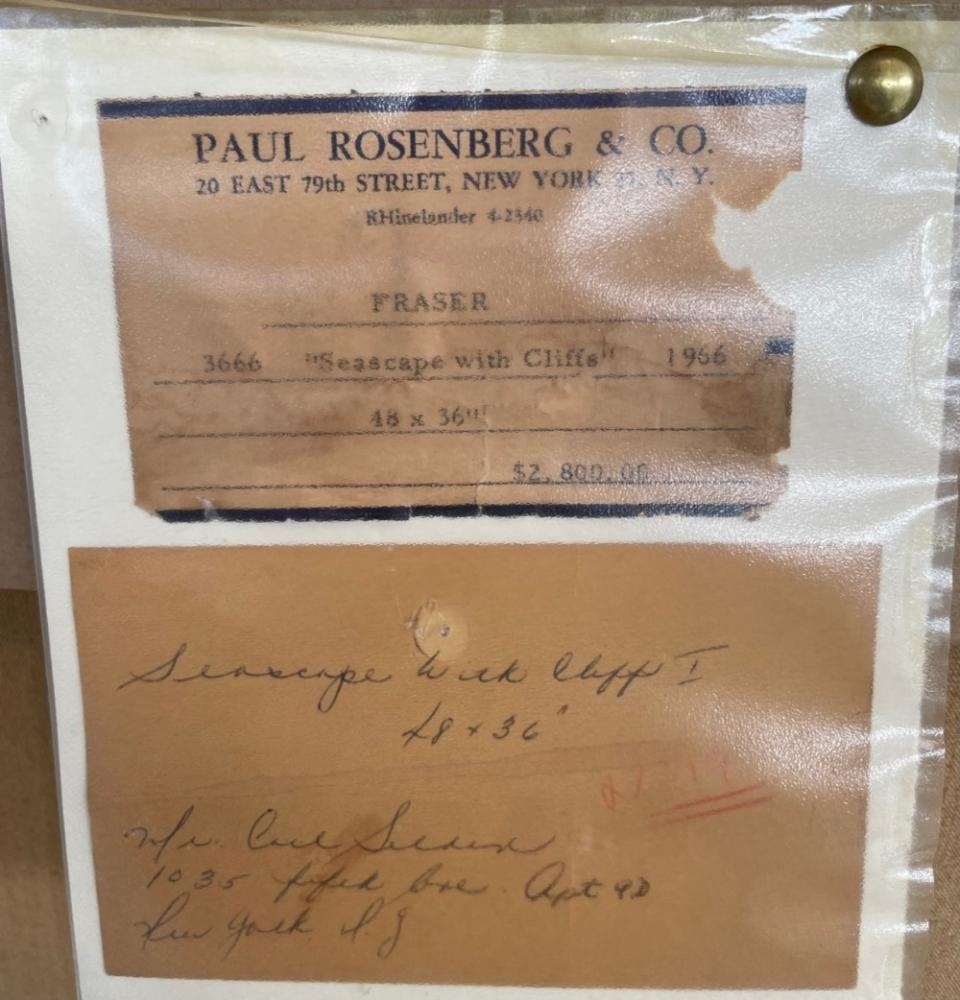 PAUL ROSENBERG & CO.
20 EAST 79th STREET, NEW YORK N. Y.
RHinelander 4-2340
FRASER
3666 "Seascape with Cliffs" 1966
48 x 36"
$2,800.00
Seascape With Cliff I
48 x 36"
Mr. Carl
1035 fifth Ave. Apt 9D
New York N.Y